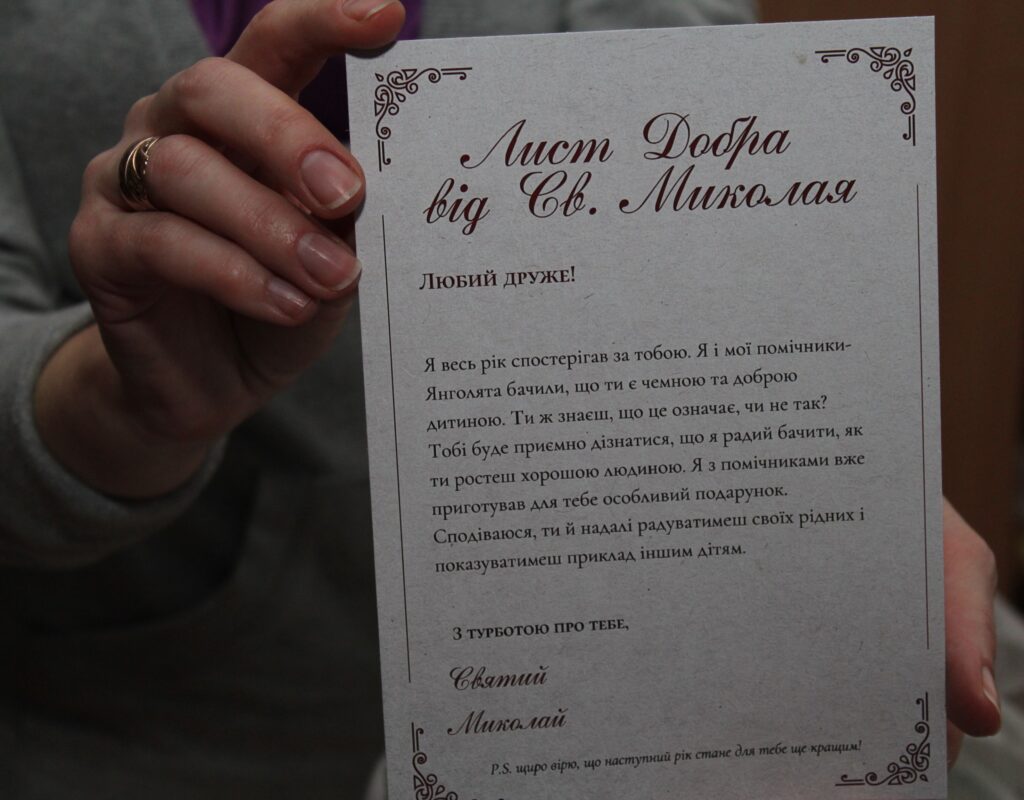 Лист Добра
від Св. Миколая
Любий друже!
Я весь рік спостерігав за тобою. Я і мої помічники-
Янголята бачили, що ти є чемною та доброю
дитиною. Ти ж знаєш, що це означає, чи не так?
Тобі буде приємно дізнатися, що я радий бачити, як
ти ростеш хорошою людиною. Я з помічниками вже
приготував для тебе особливий подарунок.
Сподіваюся, ти й надалі радуватимеш своїх рідних і
показуватимеш приклад іншим дітям.
З турботою про тебе,
Святий
Миколай
P.S. щиро вірю, що наступний рік стане для тебе ще кращим!